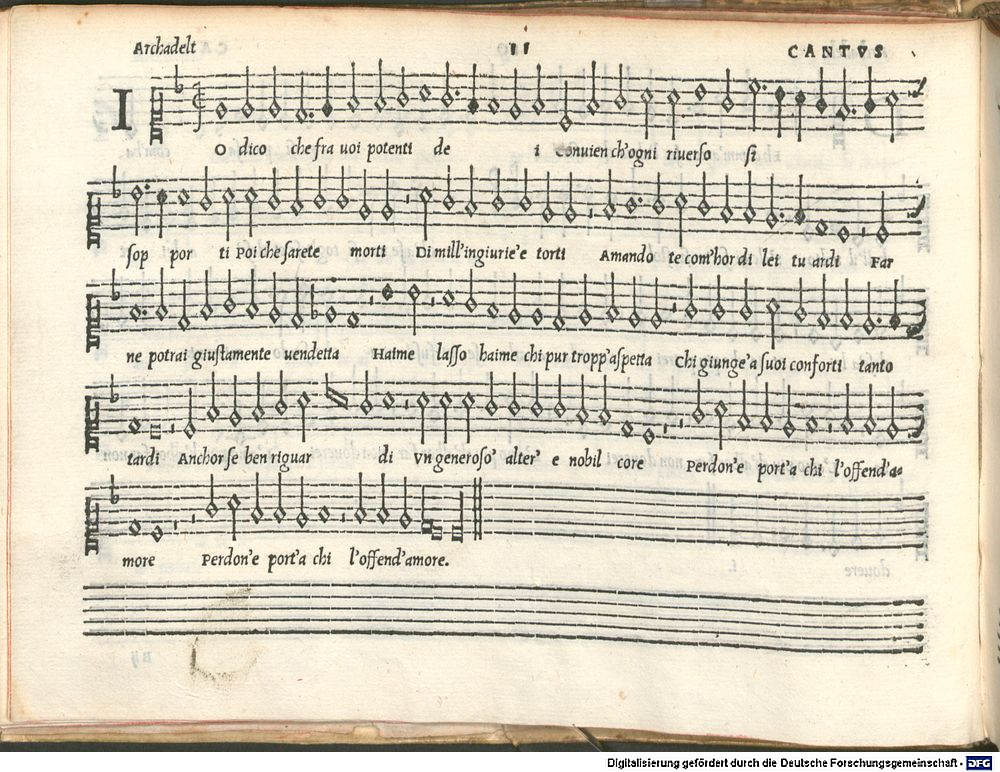 Archadelt 11 CANTVS
I
O dico che fra uoi potenti de i Conuien ch'ogni riuerso si
sop por ti Poi che sarete morti Di mill'ingiurie'e torti Amando te com'hor di lei tu ardi Far
ne potrai giustamente uendetta Haime lasso haime chi pur tropp'aspetta Chi giunge'a suoi conforti tanto
tardi Anchor se ben riguar di Vn generoso' alter' e nobil core Perdon'e port'a chi l'offend'a-
more Perdon'e port'a chi l'offend'amore.
Digitalisierung gefördert durch die Deutsche Forschungsgemeinschaft - DFG